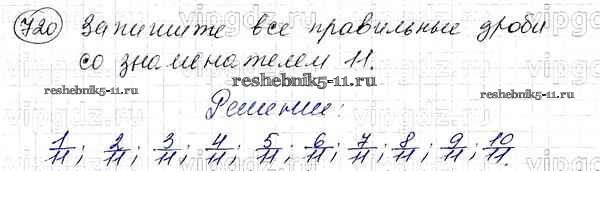 720 Запишите все правильные дроби
со знаменателем 11.
reshebnik5-11.ru
reshebnik5-11.ru
reshebnik5-11.ru
Решение:
1/11; 2/11; 3/11; 4/11; 5/11; 6/11; 7/11; 8/11; 9/11; 10/11.